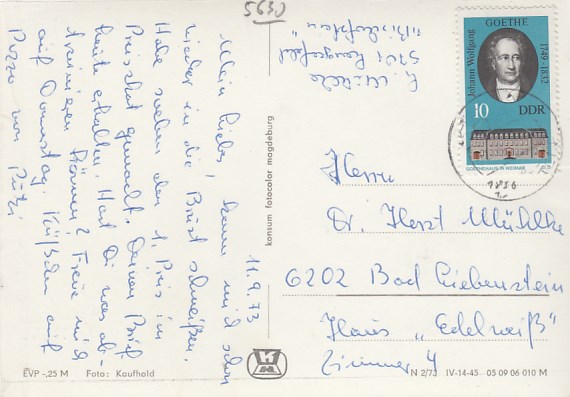 5630
11.9.73
Mein Liebes, kann mich schon
wieder in die Brust schmeißen.
Habe soeben den 1. Preis im
Preisskat gemacht. Deinen Brief
heute erhalten. Hast Du was ab-
trainieren können? Freue mich
auf Donnstag. Küßchen auf
von Putzi
5101
Herrn
Dr. Horst Mühlke
6202 Bad Liebenstein
Haus „Edelweiß"
Zimmer 4
Johann Wolfgang
GOETHE
1749-1832
10
DDR
GOETHEHAUS IN WEIMAR
konsum fotocolor magdeburg
EVP -,25 M Foto: Kaufhold
N 2/73 IV-14-45 05 09 06 010 M